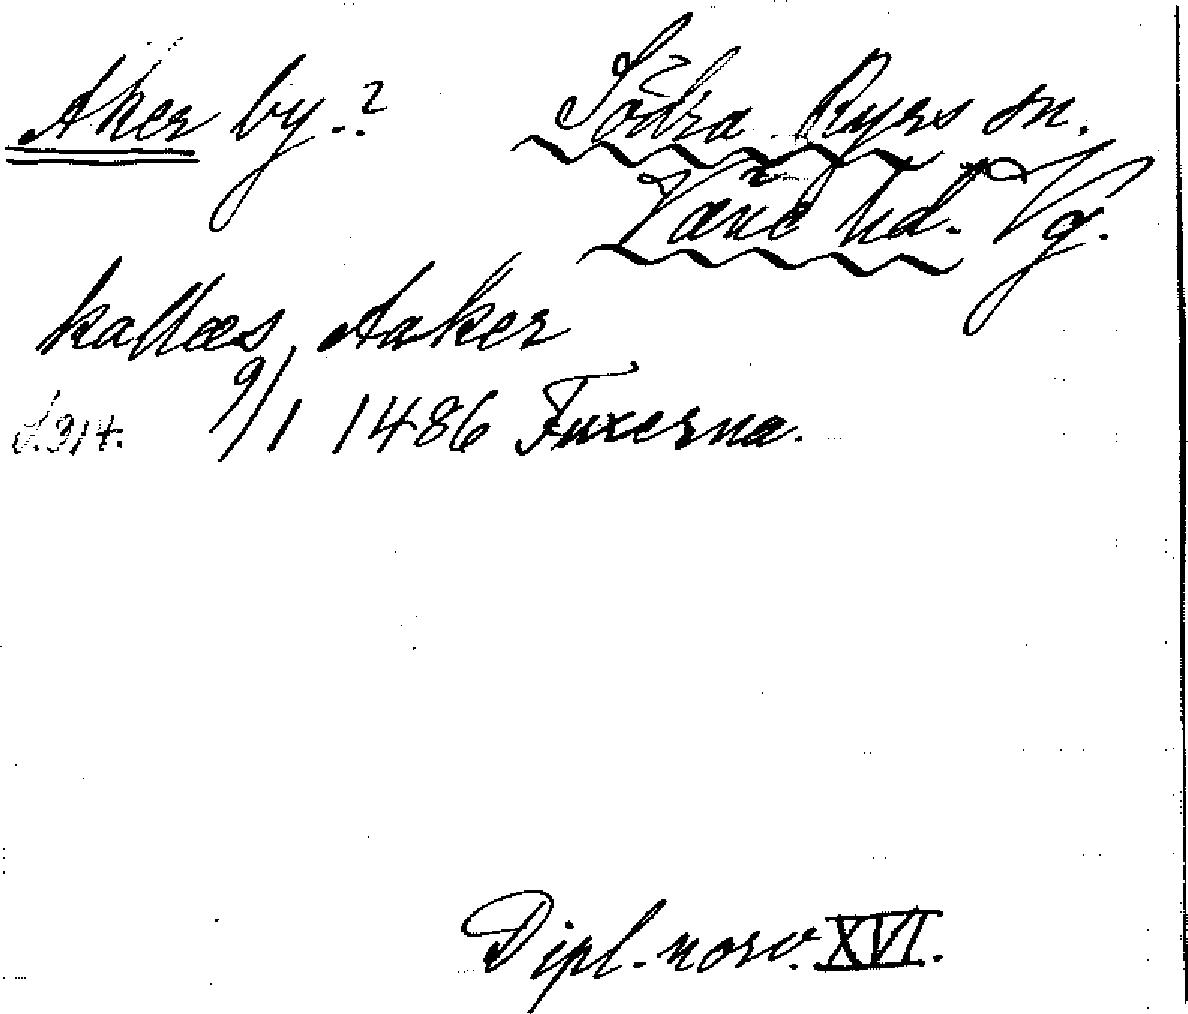 Åker by..? Södra Ryrs sn.
Väne hd. Vg.
kallæs Aaker
S.314. 9/1 1486 Fuxerna.
Dipl. norv. XVI.